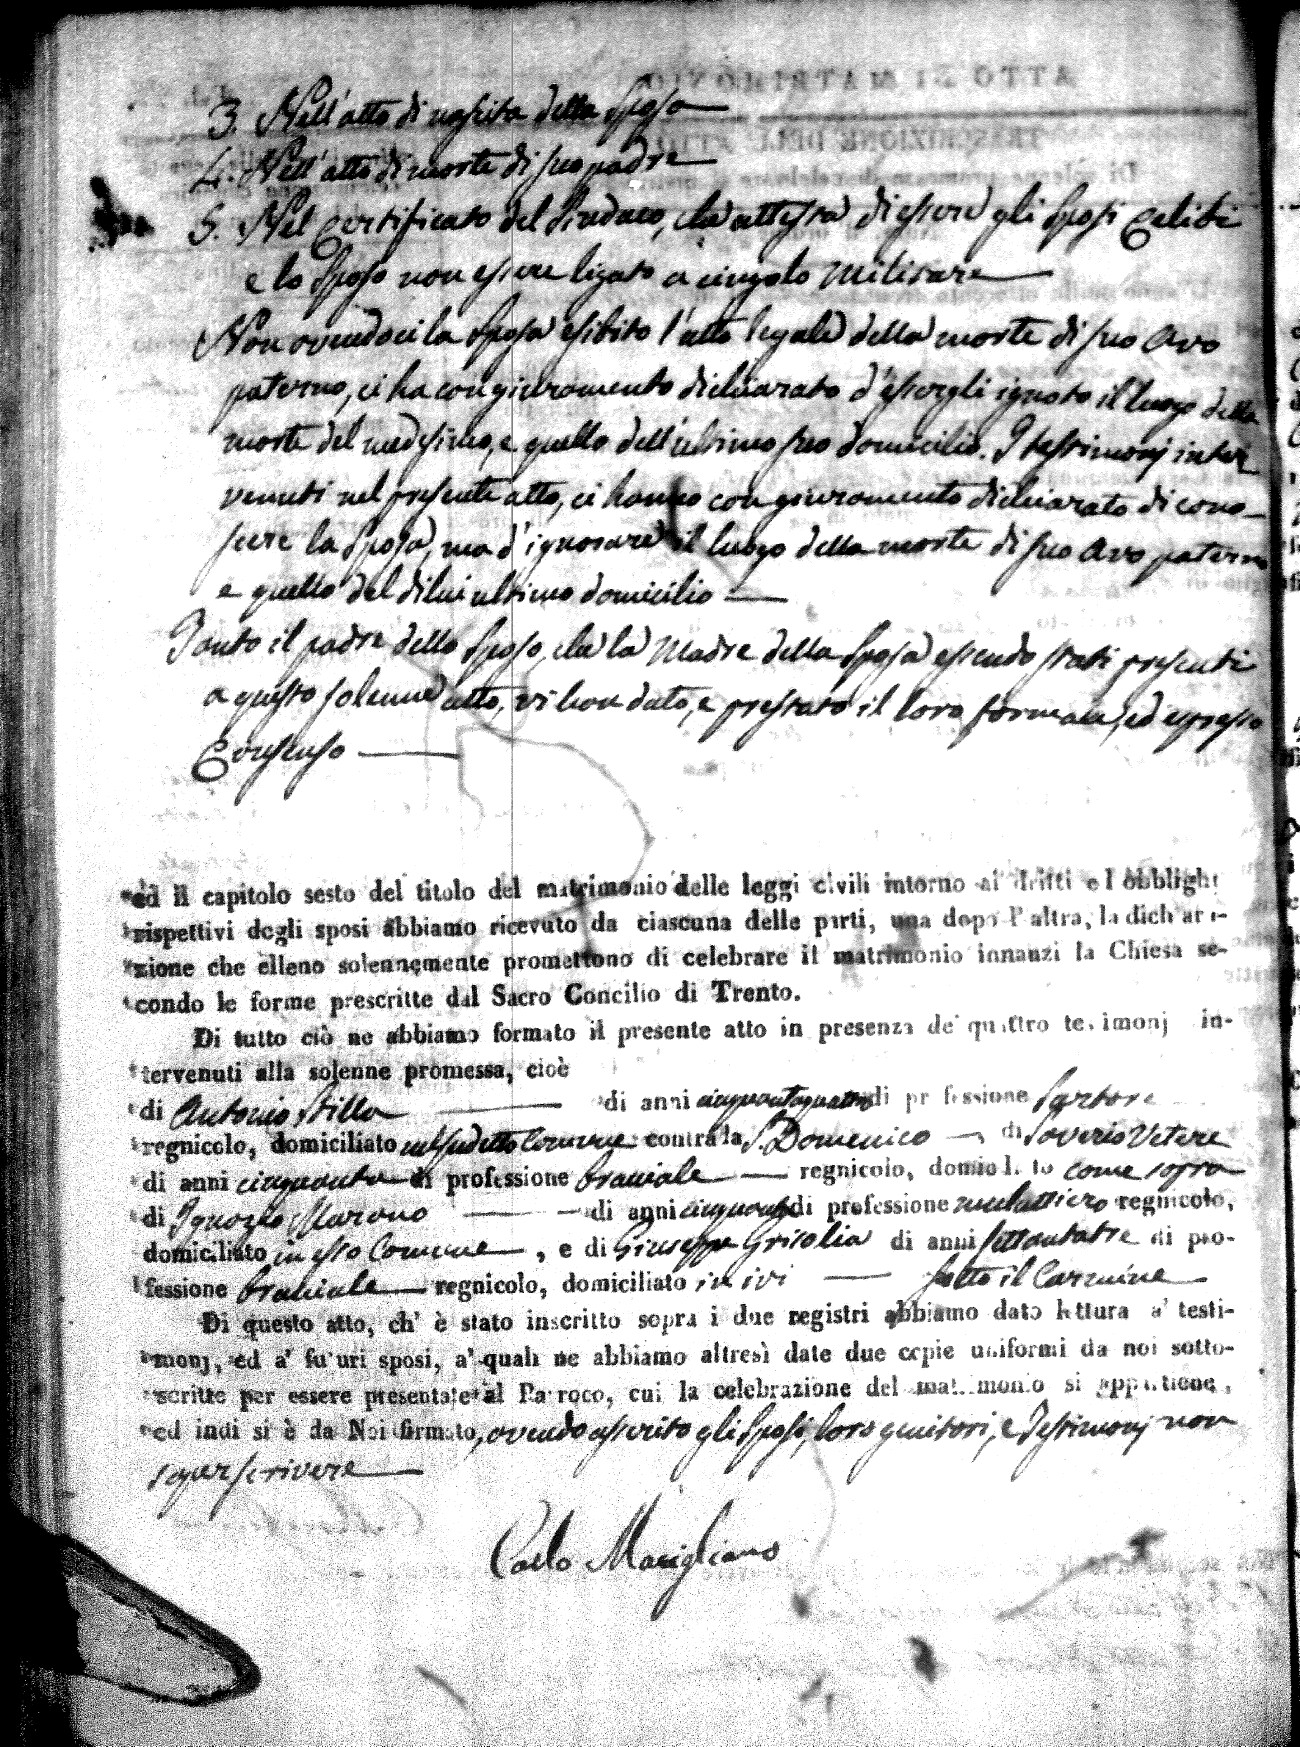 3. Nell'atto di nascita della Sposa
4. Nell'atto di morte di suo padre
5. Nel Certificato del Sindaco, che attesta di essere gli Sposi Celibi
e lo Sposo non essere ligato a cingolo militare
Non avendoci la Sposa esibito l'atto legale della morte di suo Avo
paterno, ci ha con giuramento dichiarato d'essergli ignoto il luogo della
morte del medesimo, e quello dell'ultimo suo domicilio. I testimonj inter
venuti nel presente atto, ci hanno con giuramento dichiarato di cono-
scere la Sposa, ma d'ignorare il luogo della morte di suo Avo paterno
e quello del di lui ultimo domicilio
Tanto il padre dello Sposo, che la Madre della Sposa essendo stati presenti
a questo solenne atto, vi han dato, e prestato il loro formale, ed espresso
Consenso
ed il capitolo sesto del titolo del matrimonio delle leggi civili intorno ai dritti e l'obblighi
rispettivi degli sposi abbiamo ricevuto da ciascuna delle parti, una dopo l'altra, la dichiara-
zione che elleno solennemente promettono di celebrare il matrimonio innanzi la Chiesa se-
condo le forme prescritte dal Sacro Concilio di Trento.
Di tutto ciò ne abbiamo formato il presente atto in presenza de' quattro testimonj in-
tervenuti alla solenne promessa, cioè
di Antonio Stilla di anni cinquantaquattro di professione Sartore
regnicolo, domiciliato nel sudetto Comune contrada S. Domenico di Saverio Vetere
di anni cinquanta di professione bracciale regnicolo, domiciliato come sopra
di Ignazio Marano di anni cinquanta di professione mulattiero regnicolo,
domiciliato in esso Comune, e di Giuseppe Grisolia di anni settantatre di pro-
fessione bracciale regnicolo, domiciliato in ivi sotto il Carmine
Di questo atto, ch' è stato inscritto sopra i due registri abbiamo dato lettura a' testi-
monj, ed a' futuri sposi, a' quali ne abbiamo altresì date due copie uniformi da noi sotto-
scritte per essere presentate al Parroco, cui la celebrazione del matrimonio si appartiene,
ed indi si è da Noi firmato, avendo asserito gli Sposi, loro genitori, e Testimonj non
saper scrivere
Carlo Marigliano